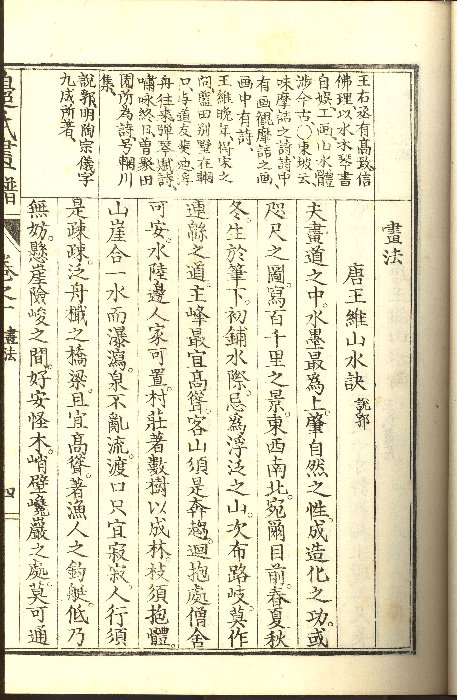 畫法
唐王維山水訣 說郛
夫畫道之中。水墨最為上。肇自然之性。成造化之功。或
咫尺之圖。寫百千里之景。東西南北。宛爾目前。春夏秋
冬。生於筆下。初鋪水際。忌為浮泛之山。次布路岐。莫作
連緜之道。主峰最宜高聳。客山須是奔趨。迴抱處僧舍
可安。水陸邊人家可置。村莊著數樹以成林。枝須抱體。
山崖合一水而瀑瀉。泉不亂流。渡口只宜寂寂。人行須
是疎疎。泛舟檝之橋梁。且宜高聳。著漁人之釣艇。低乃
無妨。懸崖險峻之間。好安怪木。峭壁巉巖之處。莫可通
王右丞有高致信
佛理以水木琴書
自娛工画山水體
涉今古○東坡云
味摩詰之詩詩中
有画觀摩詰之画
画中有詩
王維晚年得宋之
問藍田別墅在輞
口與道友裴迪浮
舟往來彈琴賦詩
嘯咏終日曽聚田
園所為詩号輞川
集
說郛明陶宗儀字
九成所著
畫譜
卷之一 畫法
四